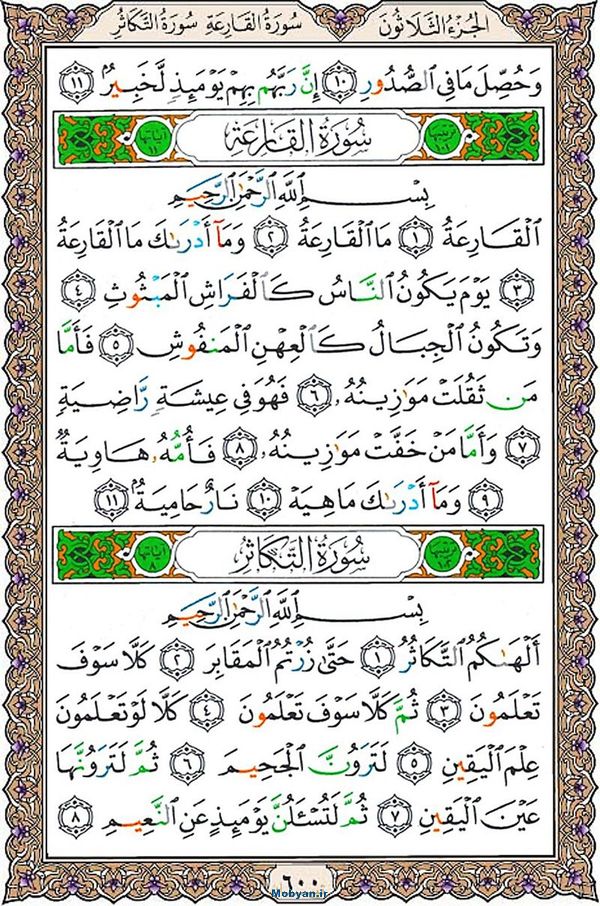 الجُزءُ الثَّلَاثُونَ سُورَةُ القَارِعَةِ سُورَةُ التَّكَاثُرِ
وَحُصِّلَ مَا فِي ٱلصُّدُورِ ١٠ إِنَّ رَبَّهُم بِهِمْ يَوْمَئِذٍ لَّخَبِيرٌۢ ١١
سُورَةُ القَارِعَةِ
بِسْمِ ٱللَّهِ ٱلرَّحْمَٰنِ ٱلرَّحِيمِ
ٱلْقَارِعَةُ ١ مَا ٱلْقَارِعَةُ ٢ وَمَآ أَدْرَىٰكَ مَا ٱلْقَارِعَةُ
٣ يَوْمَ يَكُونُ ٱلنَّاسُ كَٱلْفَرَاشِ ٱلْمَبْثُوثِ ٤
وَتَكُونُ ٱلْجِبَالُ كَٱلْعِهْنِ ٱلْمَنفُوشِ ٥ فَأَمَّا
مَن ثَقُلَتْ مَوَٰزِينُهُۥ ٦ فَهُوَ فِي عِيشَةٍ رَّاضِيَةٍ
٧ وَأَمَّا مَنْ خَفَّتْ مَوَٰزِينُهُۥ ٨ فَأُمُّهُۥ هَاوِيَةٌ
٩ وَمَآ أَدْرَىٰكَ مَا هِيَهْ ١٠ نَارٌ حَامِيَةٌۢ ١١
سُورَةُ التَّكَاثُرِ
بِسْمِ ٱللَّهِ ٱلرَّحْمَٰنِ ٱلرَّحِيمِ
أَلْهَىٰكُمُ ٱلتَّكَاثُرُ ١ حَتَّىٰ زُرْتُمُ ٱلْمَقَابِرَ ٢ كَلَّا سَوْفَ
تَعْلَمُونَ ٣ ثُمَّ كَلَّا سَوْفَ تَعْلَمُونَ ٤ كَلَّا لَوْ تَعْلَمُونَ
عِلْمَ ٱلْيَقِينِ ٥ لَتَرَوُنَّ ٱلْجَحِيمَ ٦ ثُمَّ لَتَرَوُنَّهَا
عَيْنَ ٱلْيَقِينِ ٧ ثُمَّ لَتُسْـَٔلُنَّ يَوْمَئِذٍ عَنِ ٱلنَّعِيمِ ٨
٦٠٠
Mobyan.ir